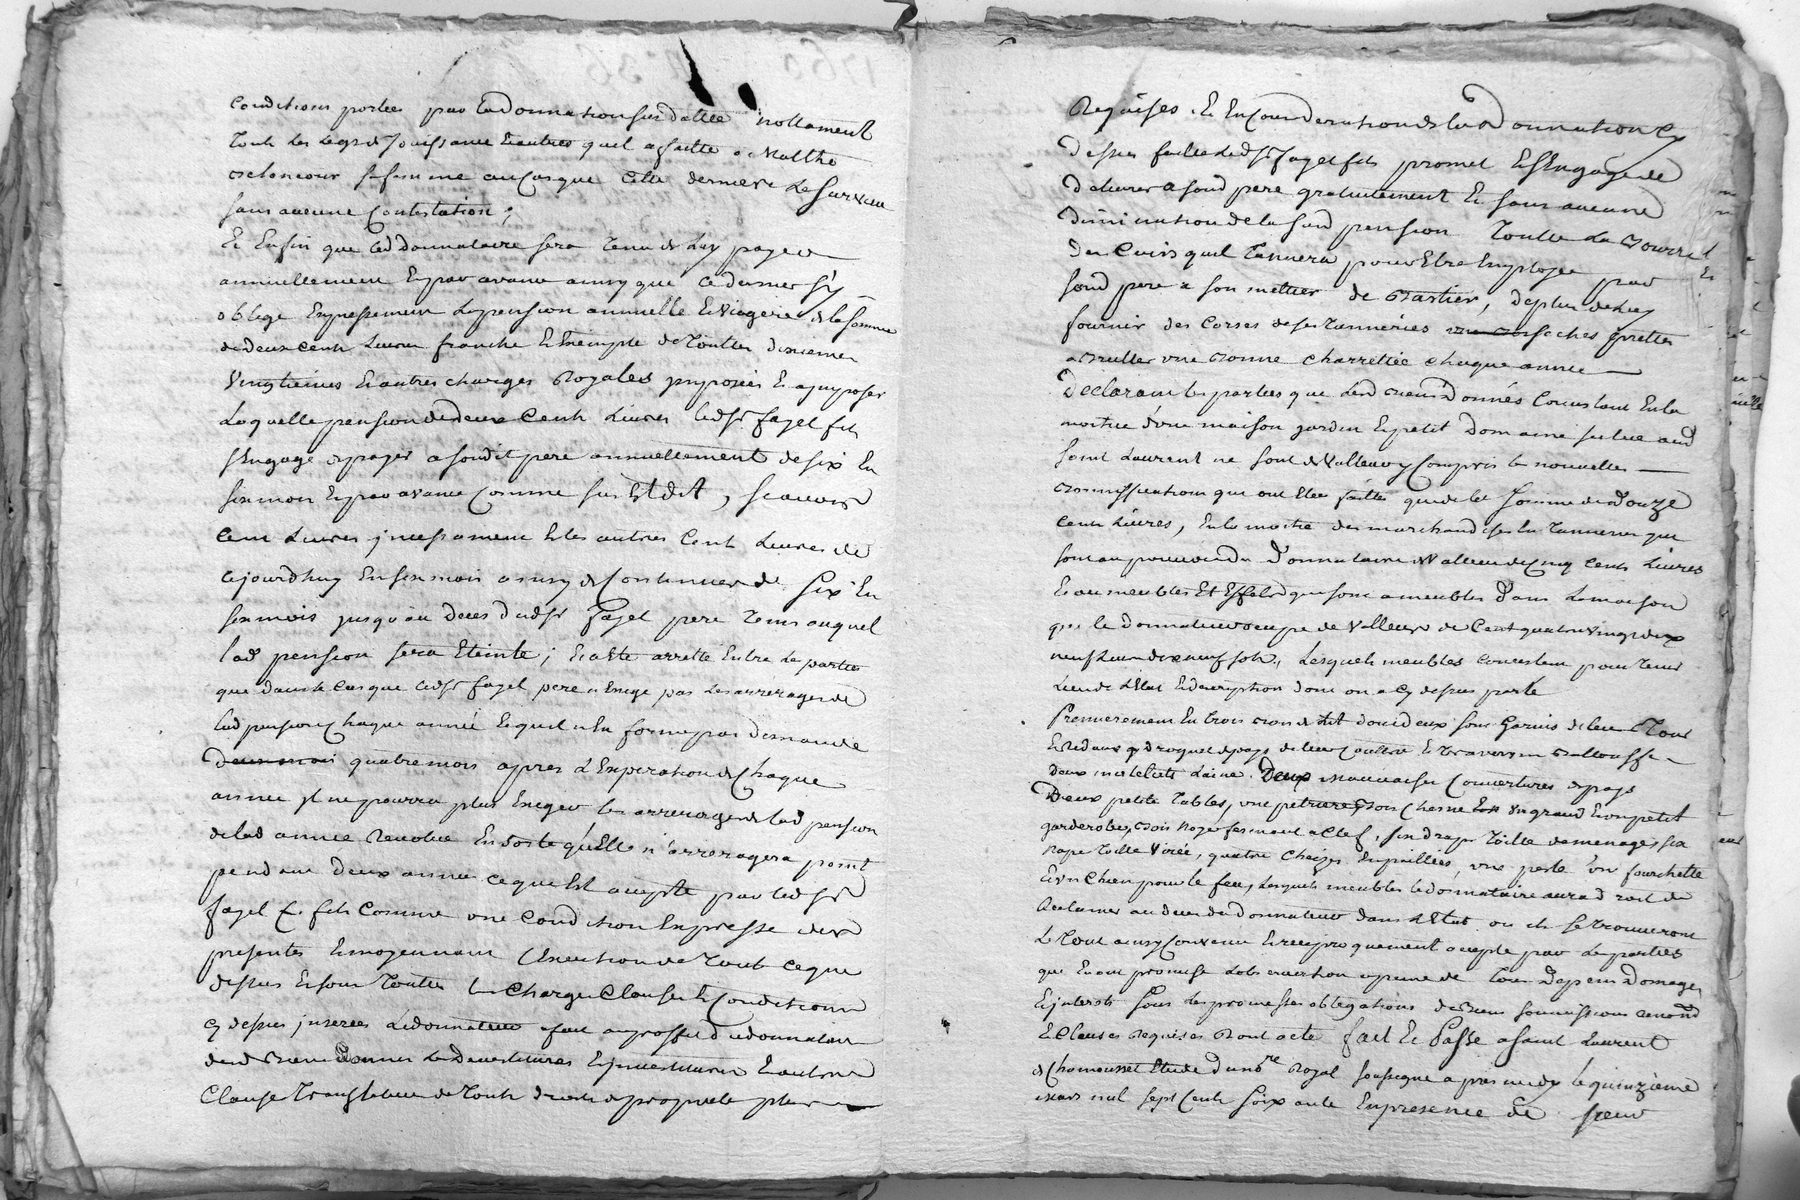 Conditions portées par la donnation sus dattée nottament
touts les legs de Jouissance et autres quel a faitte a Marthe
sa femme au cas que cette derniere le survive
sans aucune Contestation ;
Et Enfin que led donnataire sera tenu de luy payer
annuellement Et par avance ainsy que ce dernier s'y
oblige Expressement la pension annuelle Et Viagere de la somme
de deux Cents Livres franche Et Exempte de touttes dixiemes
Vingtiemes Et autres charges Royales jmposées Et a jmposer
Laquelle pension de deux Cents Livres led Sr fayel fils
s'Engage de payer a soudit pere annuellement de six En
six mois Et par avance Comme sus Est dit, scavoir
Cent Livres jncessament Et les autres Cent Livres de
cejourdhuy En six mois ainsy de Continuer de six En
six mois jusqu'au deces dudSr fayel pere tems auquel
lad pension sera Eteinte ; Et a Eté arretté Entre les parties
que dans le Cas que ledSr fayel pere n'Exige pas les arrerages de
lad pension Chaque année Et quil n'En forme pas demande
quatre mois apres l'Expiration de Chaque
année il ne pourra plus Exiger les arrerages de lad pension
de lad année Revolue En sorte qu'Elle n'arreragera point
pendant deux années ce que Est accepté par led Sr
fayel fils Comme une Condition Expresse des
presentes Et moyennant l'Execution de tout ce que
dessus Et sous touttes les Charges Clauses Et Conditions
Cy dessus jnserées le donnateur a fait au proffit du donnataire
desd Biens donnés les devestitures Et jnvestitures Et autres
Clauses translatives de touts droits de proprieté plus
Requises. Et En Consideration de la donnation Cy
dessus faitte led Sr fayel fils promet Et s'Engage de
delivrer a soud pere gratuitement Et sans aucune
diminution de lasusd pension toutte la Bourre
des Cuirs quil tannera pour Etre Employée par
soud pere a son mettier de Bastier, de plus de luy
fournir des Corses de ses tanneries seches prettes
a Bruller une Bonne charrettée chaque année
Declarant les parties que lesd Biens donnés Consistant En la
moitié d'une maison jardin Et petit domaine situé aud
saint Laurent ne sont de Valleur y Compris les nouvelles
Bonnifications qui ont Eté faittes que de la somme de Douze
Cents Livres, En la moitié des marchandises En tannerie qui
sont au pouvoir du Donnataire de Valleur de Cinq Cents Livres
Et au meubles Et Effets qui sont a meubles dans la maison
que le donnateur occupe de Valleur de Cent quatre Vingt dix
neuf Livres dix neuf sols, Lesquels meubles Consistent pour tenir
Lieu de l'Etat Et description dont on a Cy dessus parlé
Premierement En trois Bois de lit dont deux sont garnis de leur tour
Et Rideaux de droguet de pays de leur Couttre Et traversin
deux matelats Laine. Deux mauvaises Couvertures de pays
Deux petite tables, une petriere Bois Chesne un grand Et un petit
garderobes, Bois noyer fermant a Clef, six draps toille de menage six
nape toille Virée, quatre Chaizes Empaillées, une perle un fourchette
Et un Chien pour le feu, Lesquels meubles le donnataire aura droit de
Reclamer au deces du donnateur dans l'Etat ou ils se trouveront
Le tout ainsy Convenu Et reciproquement accepté par les parties
qui En ont promise l'observation a peine de tous depens Domages
Et jnterets sous les promesses obligations de Biens soumissions renond
Et Clauses Requises Dont acte fait Et Passé a saint Laurent
de Chamousset Etude du nore Royal soussigné apres midy le quinzieme
mars mil sept Cents soixante En presence de sieur